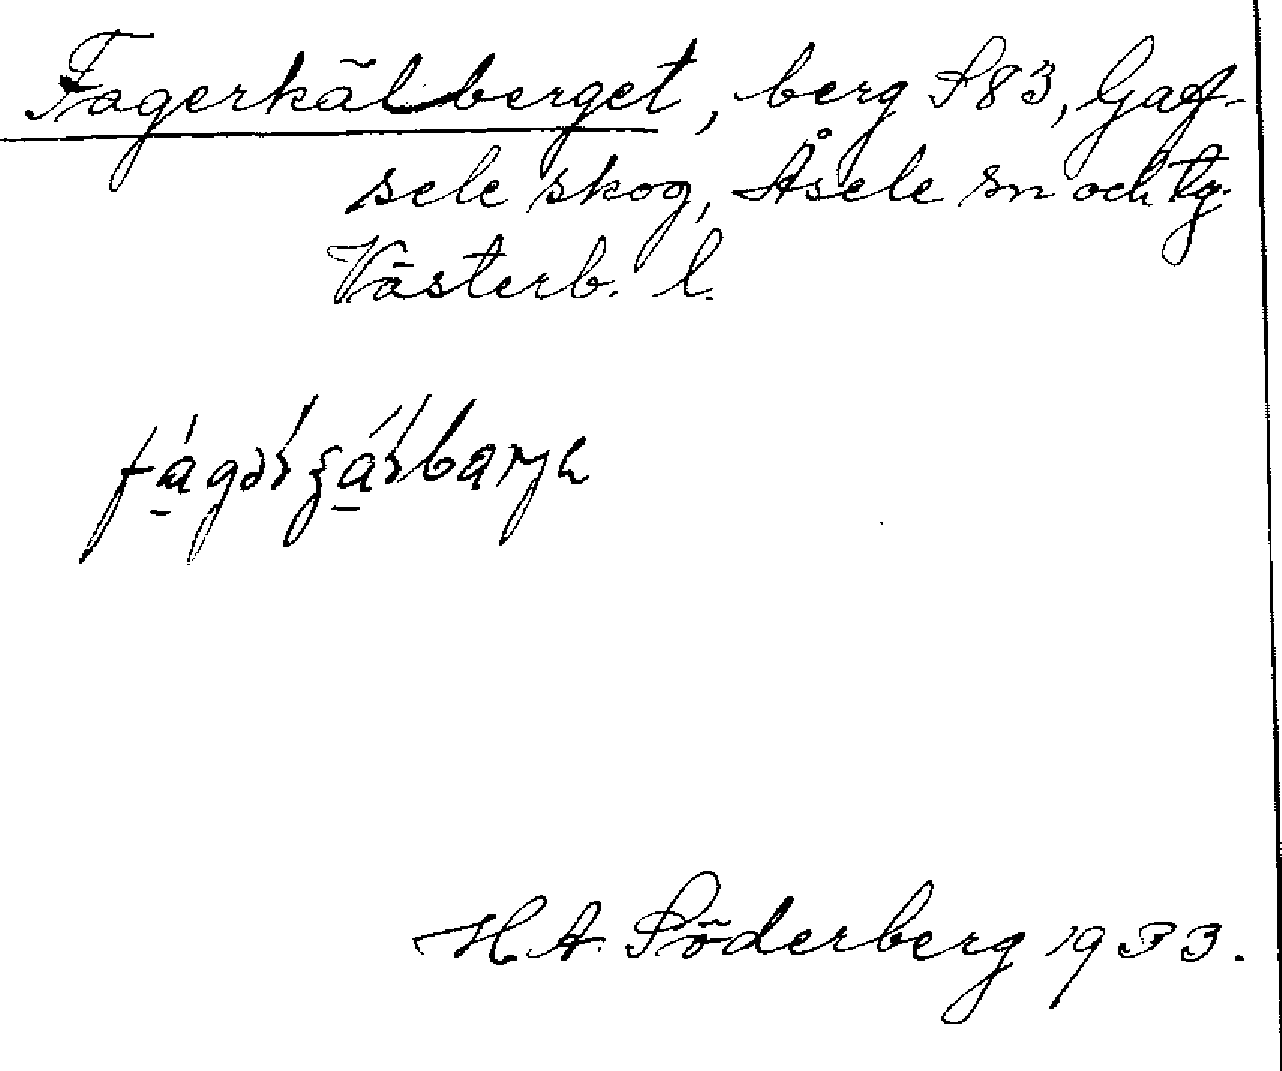 Fagerkälberget, berg S83, Gaf-
sele skog, Åsele sn och lg.
Västerb. l.
H. A. Söderberg 1933.